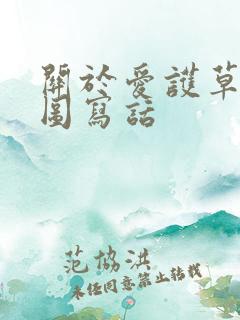 關於愛護草
圖寫話
范協洪
未经同意禁止转载